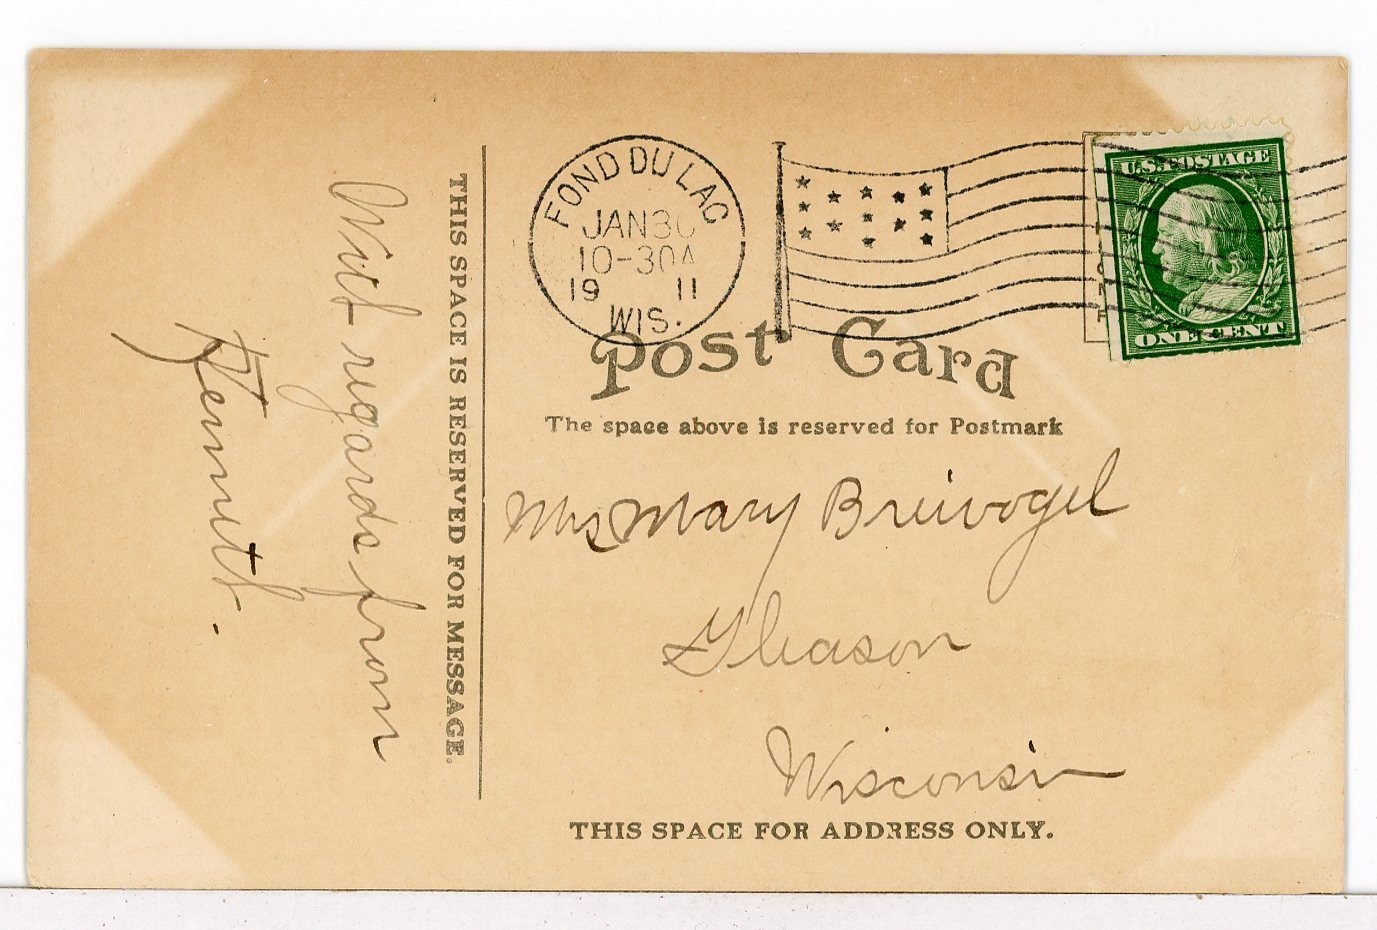 FOND DU LAC
JAN 30
10-30A
19 11
WIS.
U.S. POSTAGE
ONE CENT
Post Card
The space above is reserved for Postmark
THIS SPACE IS RESERVED FOR MESSAGE.
With regards from
Kenneth.
Mrs Mary Breivogel
Gleason
Wisconsin
THIS SPACE FOR ADDRESS ONLY.